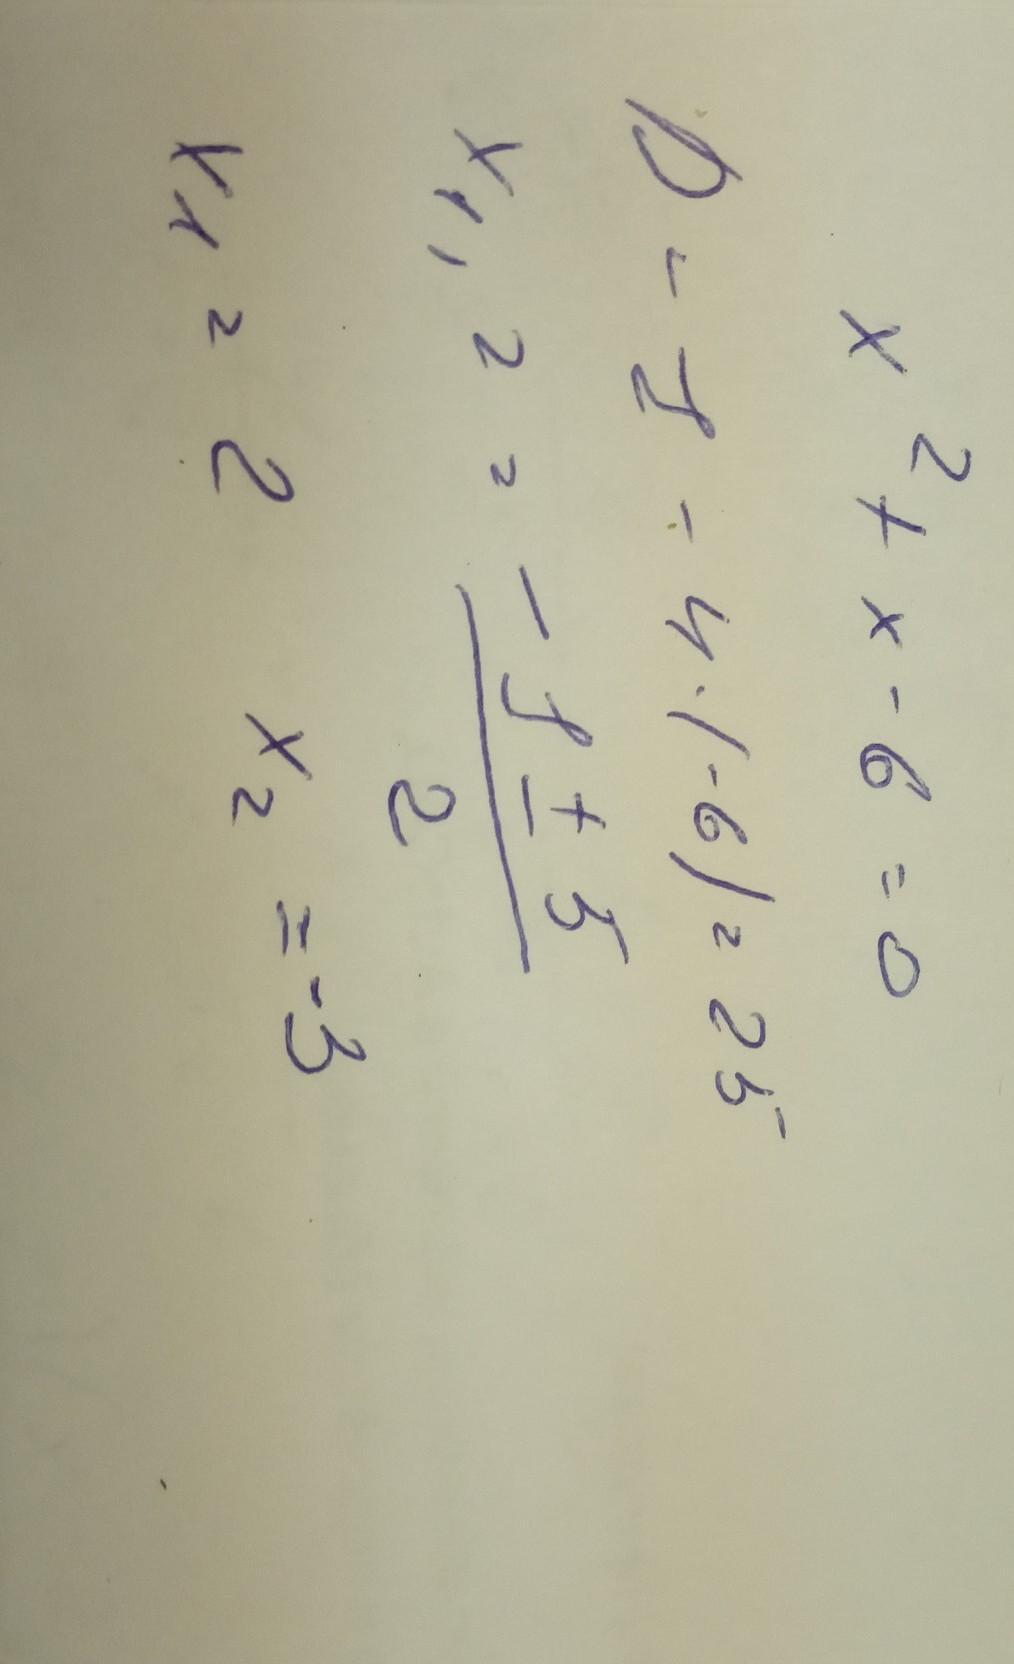 x² + x - 6 = 0
D = 1 - 4·(-6) = 25
x₁,₂ = (-1 ± 5) / 2
x₁ = 2 x₂ = -3